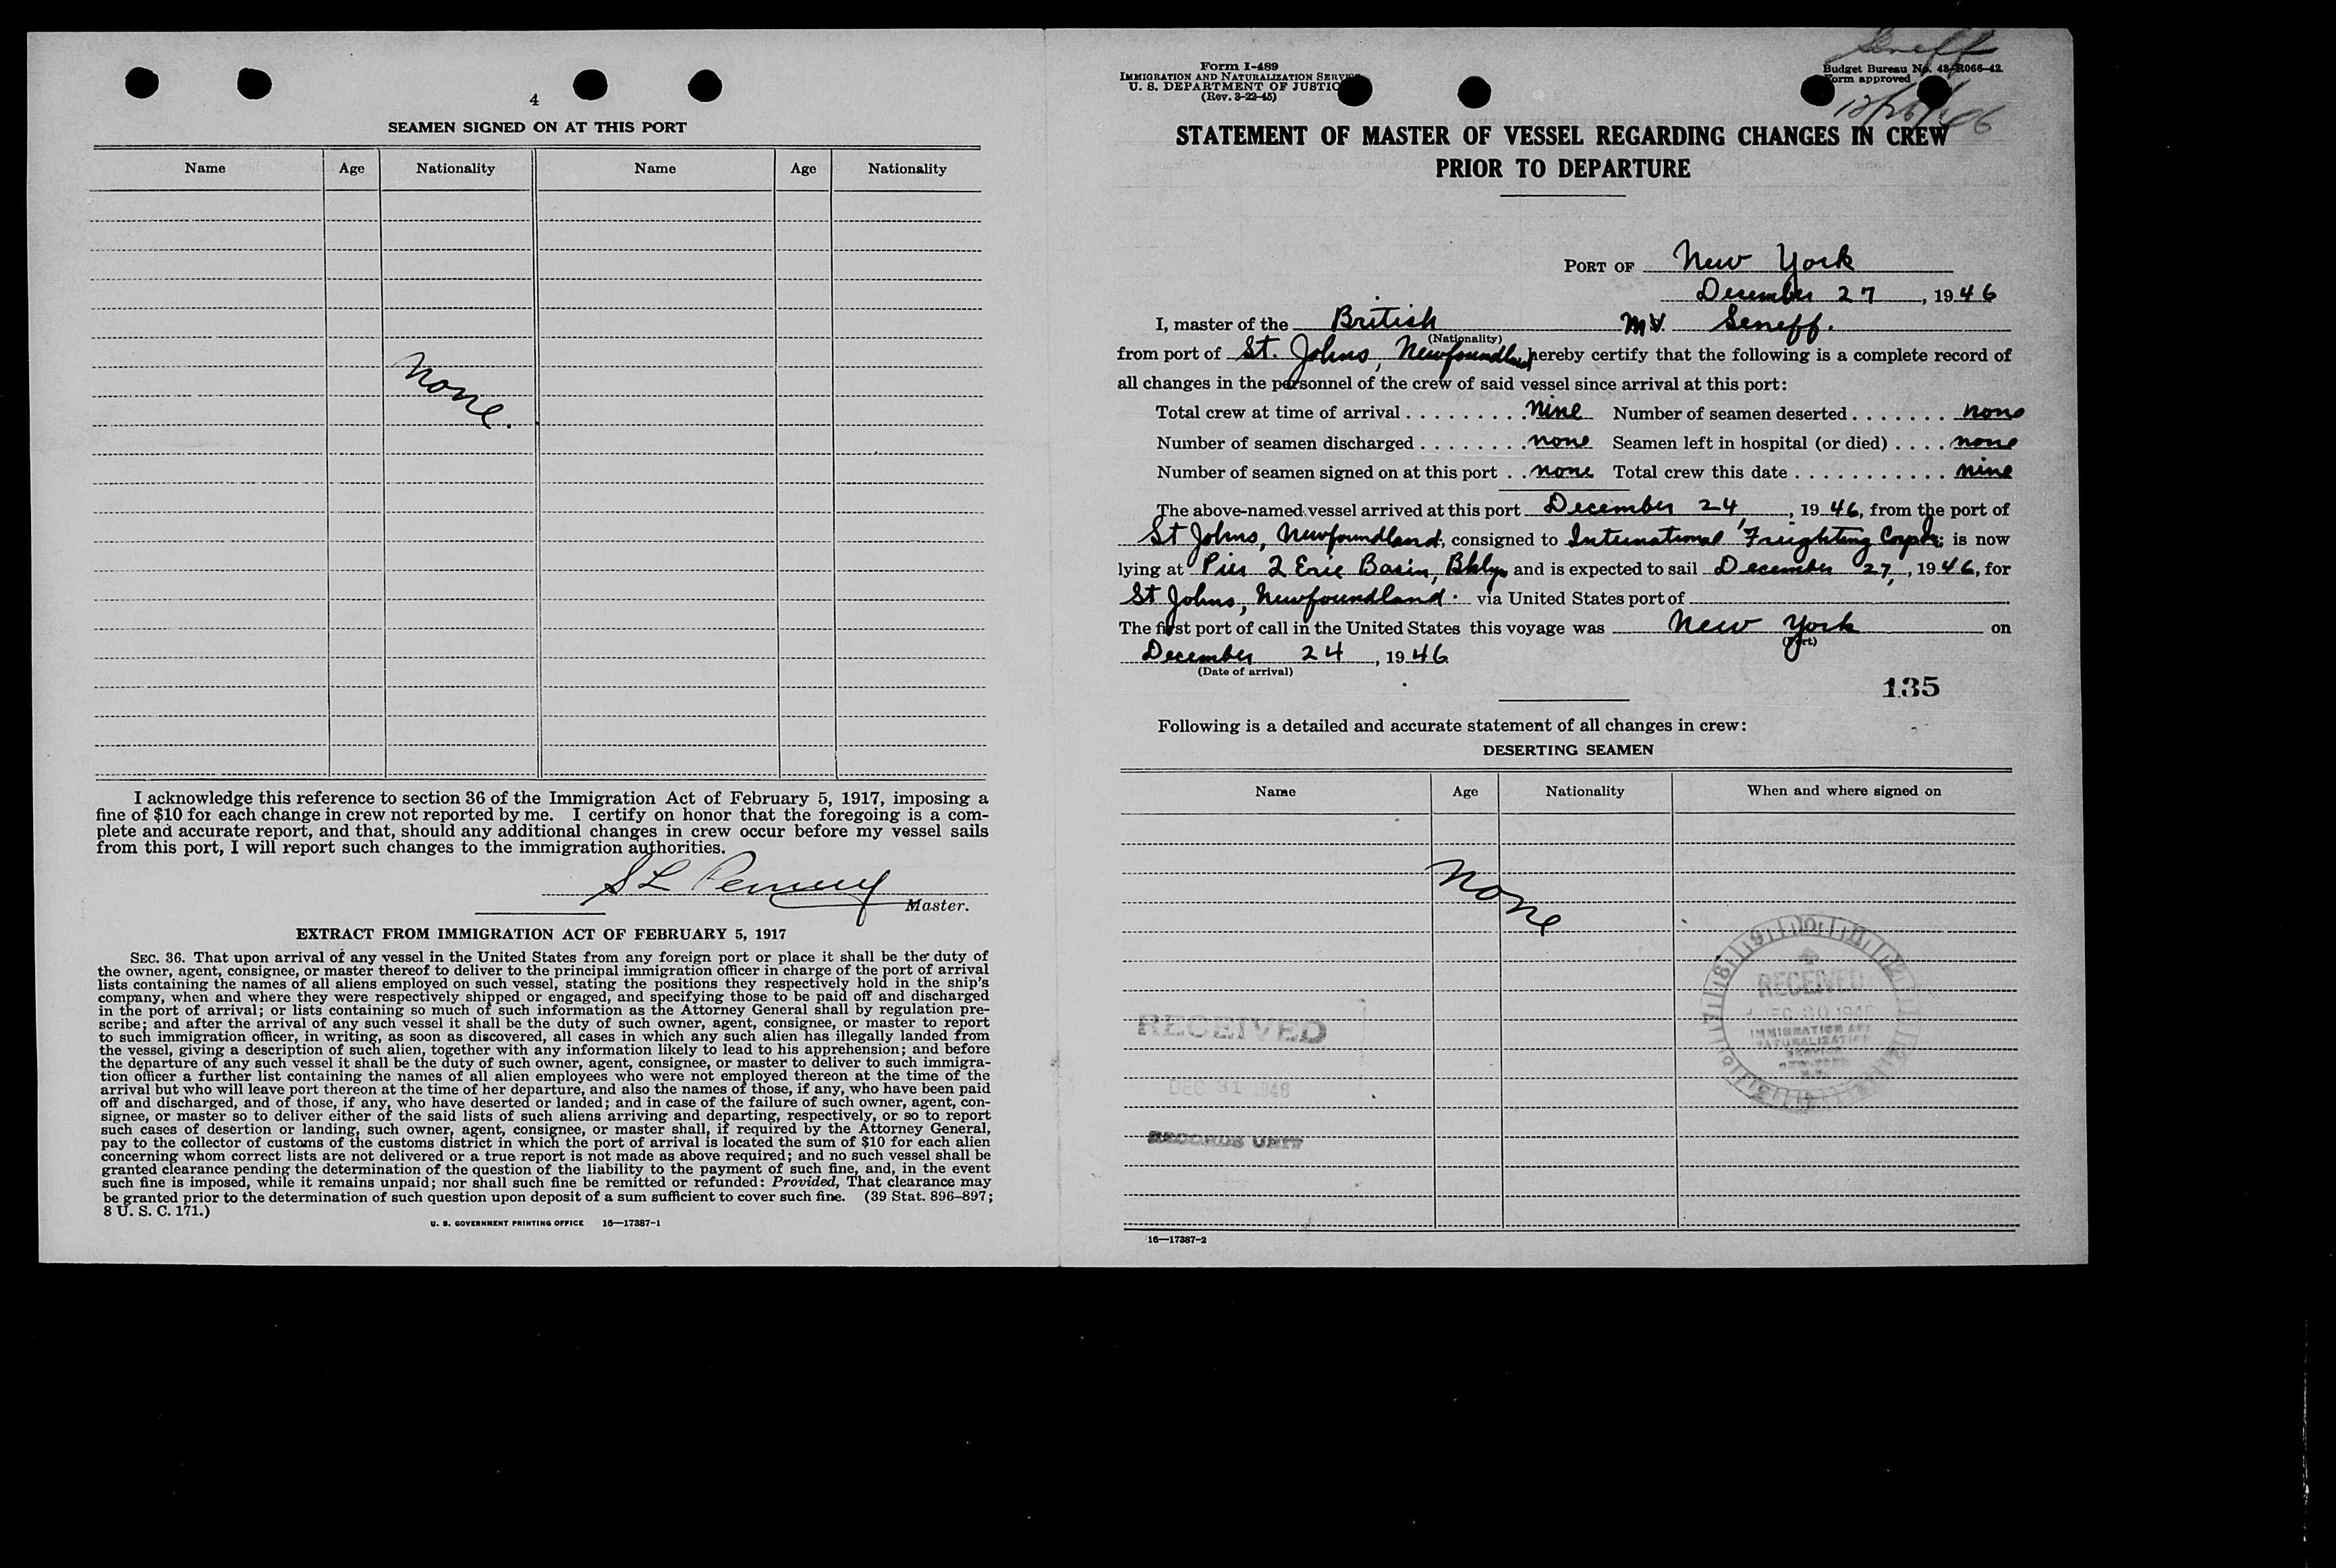 4
SEAMEN SIGNED ON AT THIS PORT
Name Age Nationality Name Age Nationality
None.
I acknowledge this reference to section 36 of the Immigration Act of February 5, 1917, imposing a
fine of $10 for each change in crew not reported by me. I certify on honor that the foregoing is a com-
plete and accurate report, and that, should any additional changes in crew occur before my vessel sails
from this port, I will report such changes to the immigration authorities.
S L Penney
Master.
EXTRACT FROM IMMIGRATION ACT OF FEBRUARY 5, 1917
SEC. 36. That upon arrival of any vessel in the United States from any foreign port or place it shall be the duty of
the owner, agent, consignee, or master thereof to deliver to the principal immigration officer in charge of the port of arrival
lists containing the names of all aliens employed on such vessel, stating the positions they respectively hold in the ship's
company, when and where they were respectively shipped or engaged, and specifying those to be paid off and discharged
in the port of arrival; or lists containing so much of such information as the Attorney General shall by regulation pre-
scribe; and after the arrival of any such vessel it shall be the duty of such owner, agent, consignee, or master to report
to such immigration officer, in writing, as soon as discovered, all cases in which any such alien has illegally landed from
the vessel, giving a description of such alien, together with any information likely to lead to his apprehension; and before
the departure of any such vessel it shall be the duty of such owner, agent, consignee, or master to deliver to such immigra-
tion officer a further list containing the names of all alien employees who were not employed thereon at the time of the
arrival but who will leave port thereon at the time of her departure, and also the names of those, if any, who have been paid
off and discharged, and of those, if any, who have deserted or landed; and in case of the failure of such owner, agent, con-
signee, or master so to deliver either of the said lists of such aliens arriving and departing, respectively, or so to report
such cases of desertion or landing, such owner, agent, consignee, or master shall, if required by the Attorney General,
pay to the collector of customs of the customs district in which the port of arrival is located the sum of $10 for each alien
concerning whom correct lists are not delivered or a true report is not made as above required; and no such vessel shall be
granted clearance pending the determination of the question of the liability to the payment of such fine, and, in the event
such fine is imposed, while it remains unpaid; nor shall such fine be remitted or refunded: Provided, That clearance may
be granted prior to the determination of such question upon deposit of a sum sufficient to cover such fine. (39 Stat. 896–897;
8 U. S. C. 171.)
U. S. GOVERNMENT PRINTING OFFICE 16—17387-1
Seneff
Form I-489
IMMIGRATION AND NATURALIZATION SERVICE
U. S. DEPARTMENT OF JUSTICE
(Rev. 3-22-45)
Budget Bureau No. 43-R066-42
Form approved
STATEMENT OF MASTER OF VESSEL REGARDING CHANGES IN CREW
PRIOR TO DEPARTURE
PORT OF New York
December 27, 1946
I, master of the British MV Seneff.
(Nationality)
from port of St. Johns, Newfoundland hereby certify that the following is a complete record of
all changes in the personnel of the crew of said vessel since arrival at this port:
Total crew at time of arrival . . . . . . . . . nine Number of seamen deserted . . . . . . . none
Number of seamen discharged . . . . . . . . none Seamen left in hospital (or died) . . . . none
Number of seamen signed on at this port . . none Total crew this date . . . . . . . . . . . nine
The above-named vessel arrived at this port December 24, 1946, from the port of
St Johns, Newfoundland, consigned to International Freighting Corp; is now
lying at Pier 2 Erie Basin, Bklyn and is expected to sail December 27, 1946, for
St Johns, Newfoundland. via United States port of
The first port of call in the United States this voyage was New York on
(Port)
December 24, 1946
(Date of arrival)
135
Following is a detailed and accurate statement of all changes in crew:
DESERTING SEAMEN
Name Age Nationality When and where signed on
None
RECEIVED
DEC 30 1946
IMMIGRATION AND
NATURALIZATION
SERVICE
RECEIVED
DEC 31 1946
RECORDS UNIT
16—17387-2